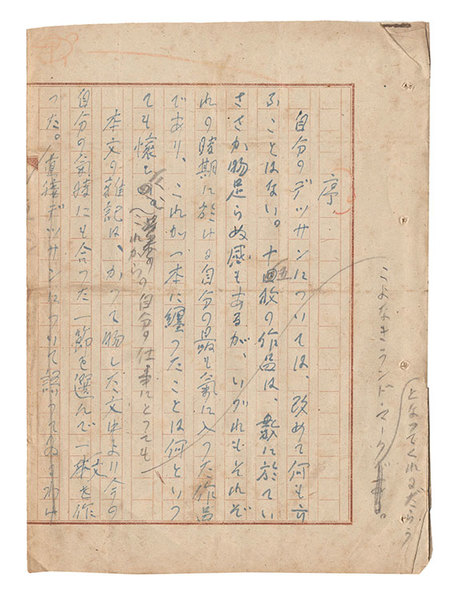 となってくれるだらう
こよなきランド・マーク
序。
自分のデッサンについては、改めて何も言
ふことはない。十五枚の作品は、數に於てい
ささか物足らぬ感もあるが、いづれもそれぞ
れの時期に於ける自分の最も氣に入つた作品
であり、これが一本に纒つたことは何といつ
ても懐しく これからの自分の仕事にとつても
本文の雜記は、かつて物した文中より今の
自分の氣持にも合つた一節を選んで一文を作
つた。直接デッサンについて語つてゐるわけ